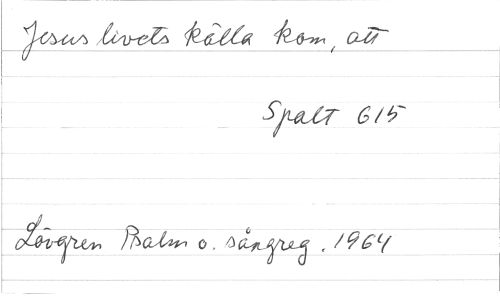 Jesus livets källa kom, att
Spalt 615
Lövgren Psalm o. sångreg. 1964